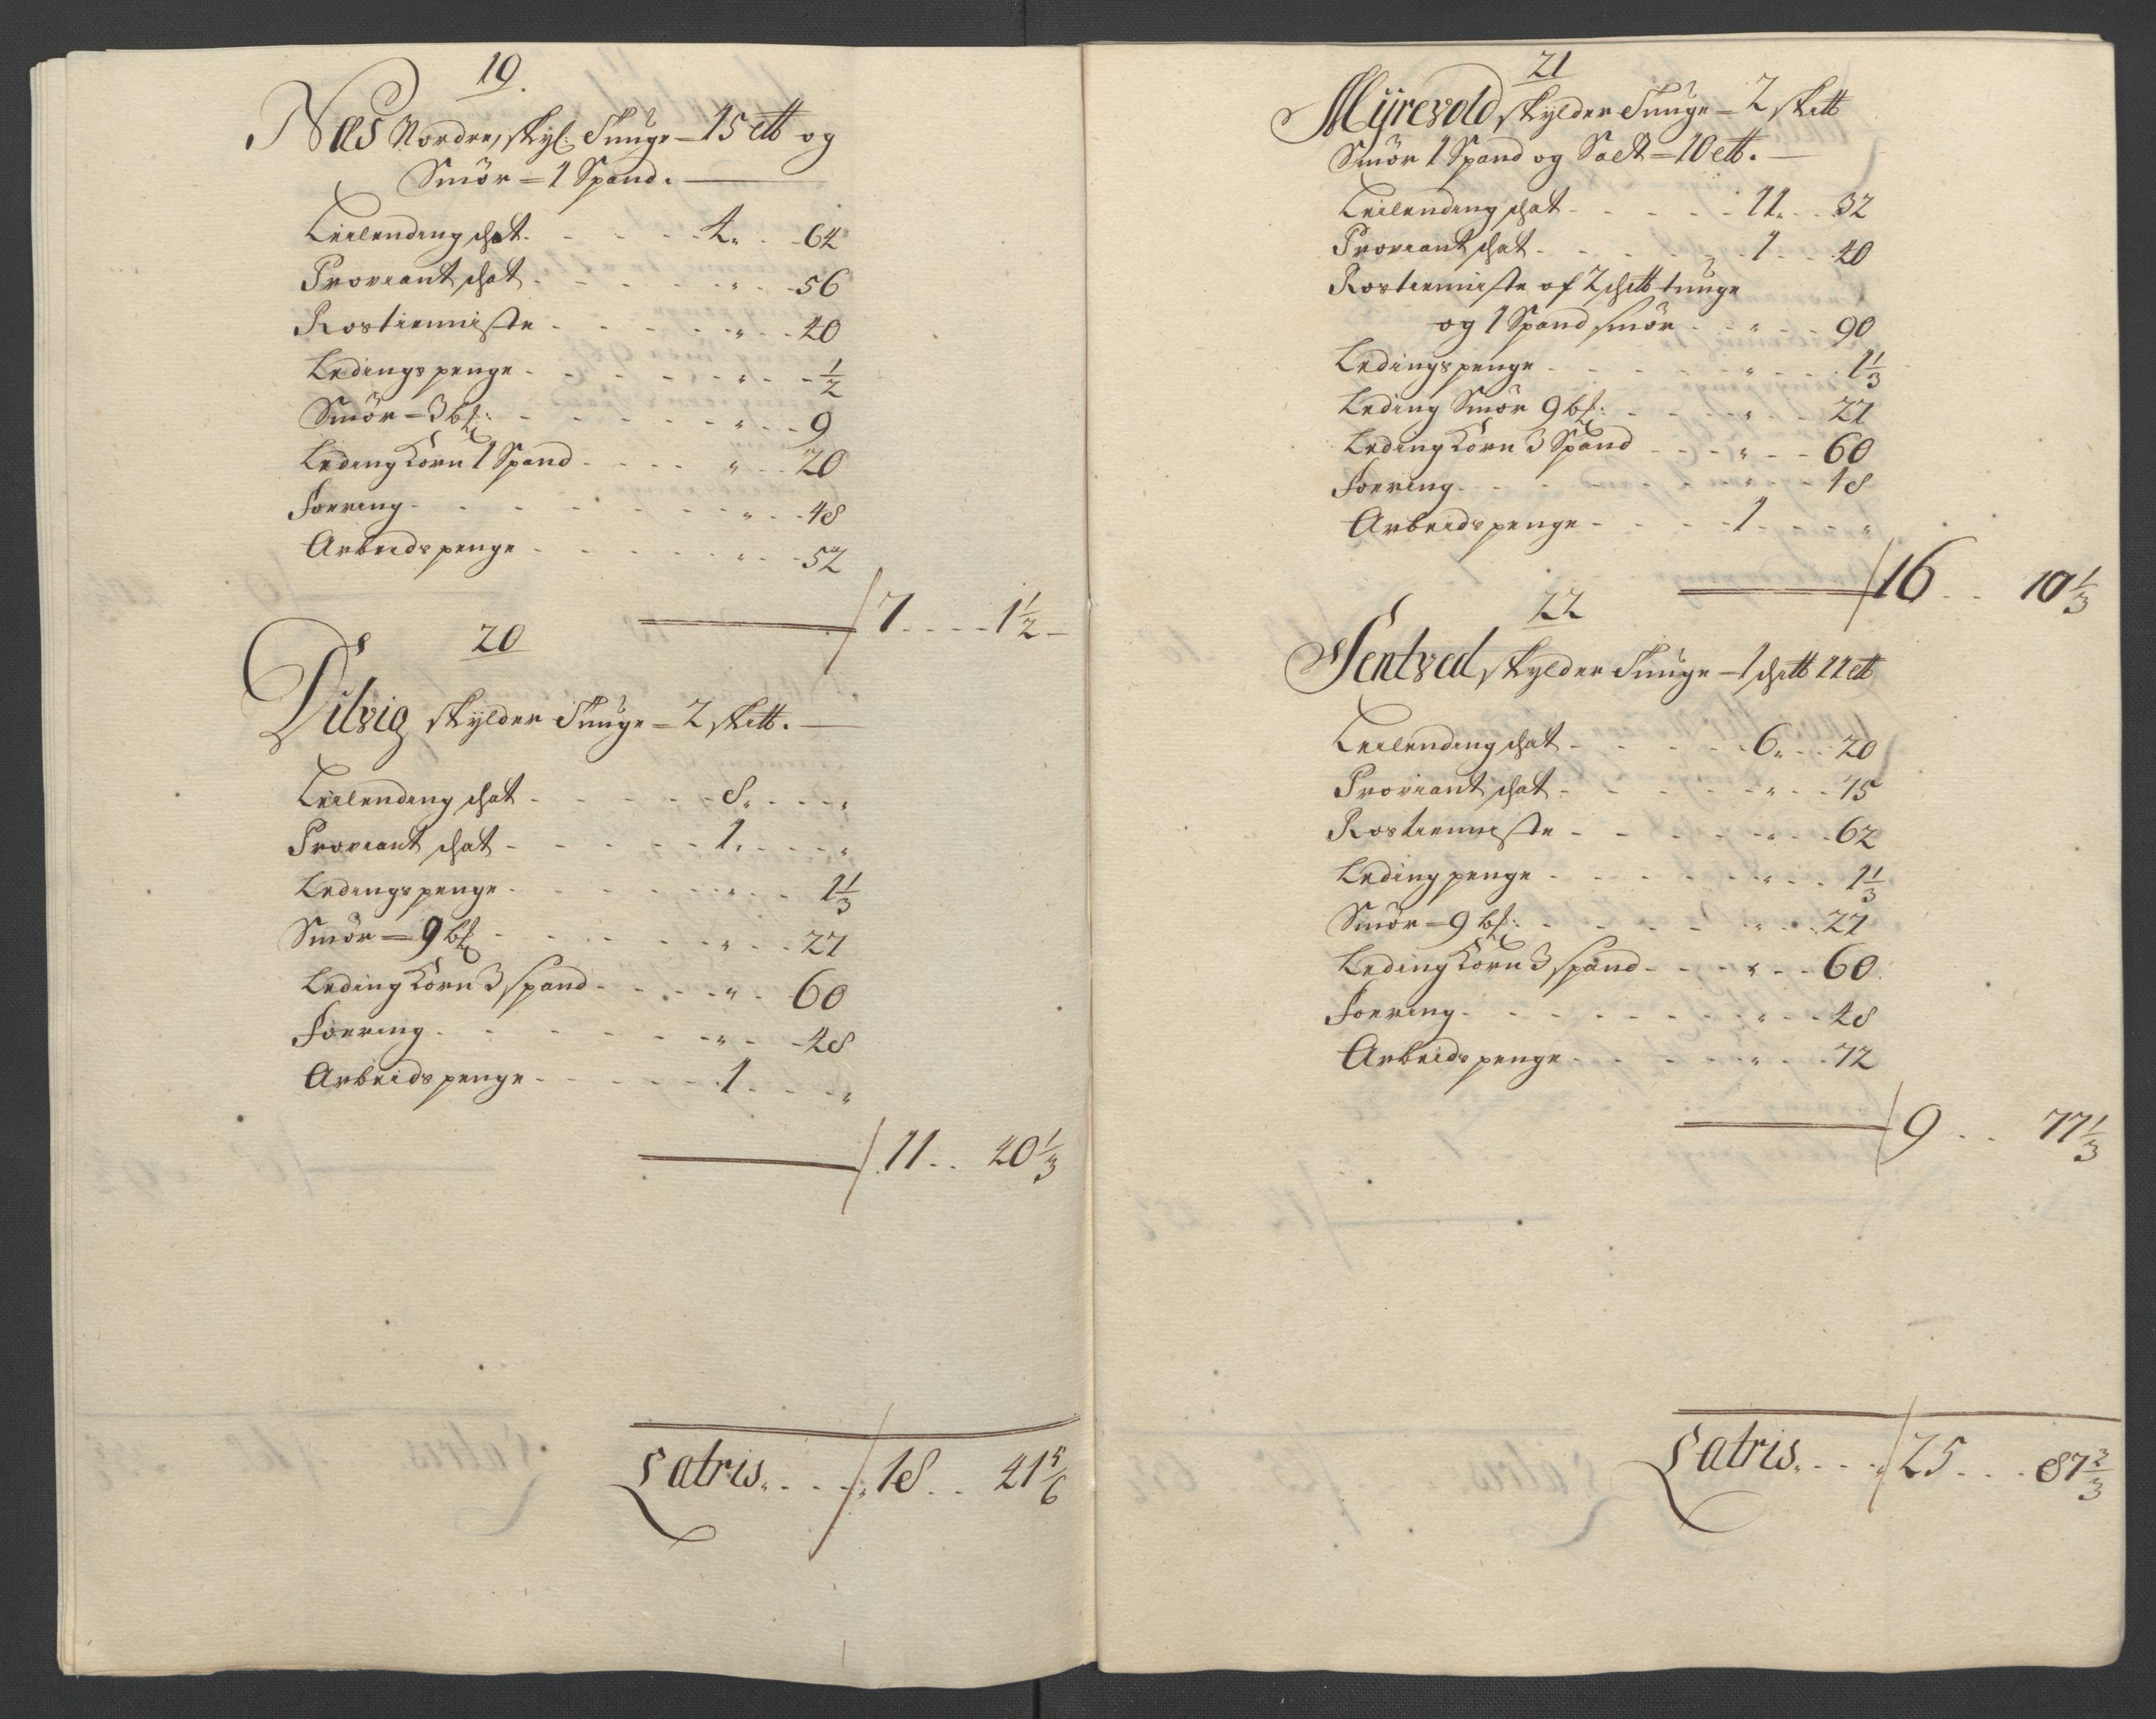 19.
Næs Nordre, skyl: Tunge – 15 ℔ og
Smör = 1 Spand. —
Leilending schat - - - 4 " - 64
Proviant schat - - - " - 56
Rostienniste - - - " - 40
Ledingspenge - - - " - ½
Smör – 3 bℓ: - - - " - 9
Leding Korn 1 Spand - - - " - 20
Foering - - - " - 48
Arbeidspenge - - - " - 52
7 - - - 1½ –
20
Dilvig skylder Tunge = 2 sk℔. —
Leilending schat - - - 8 " - "
Proviant schat - - - 1 - - "
Ledingspenge - - - " - 1⅓
Smör = 9 bℓ - - - " - 27
Leding Korn 3 spand - - - " - 60
Foering - - - " - 48
Arbeidspenge - - - 1 - - "
11 - - 40⅓
Latris - - - 18 - - 41⅚
21
Myrevold skylder Tunge = 2 sk℔
Smör 1 Spand og Salt = 10 ℔. —
Leilending schat - - - 11 " - 32
Proviant schat - - - 1 - 40
Rostienniste of 2 sch℔ tunge
og 1 Spand smör - - " - 90
Ledingspenge - - - " - 1⅓
Leding Smör 9 bℓ: - - - " - 27
Leding Korn 3 Spand - - - " - 60
Foering - - - " - 48
Arbeidspenge - - - 1 - - "
16 - - 10⅓
22
Tentved skylder Tunge – 1 sch℔ 11 ℔
Leilending schat - - - 6 " - 20
Proviant schat - - - " - 75
Rostienniste - - - " - 62
Leding penge - - - " - 1⅓
Smör – 9 bℓ: - - - " - 27
Leding Korn 3 spand - - - " - 60
Foering - - - " - 48
Arbeidspenge - - - " - 72
9 - - 77⅓
Latris - - - 25 - - 87⅔